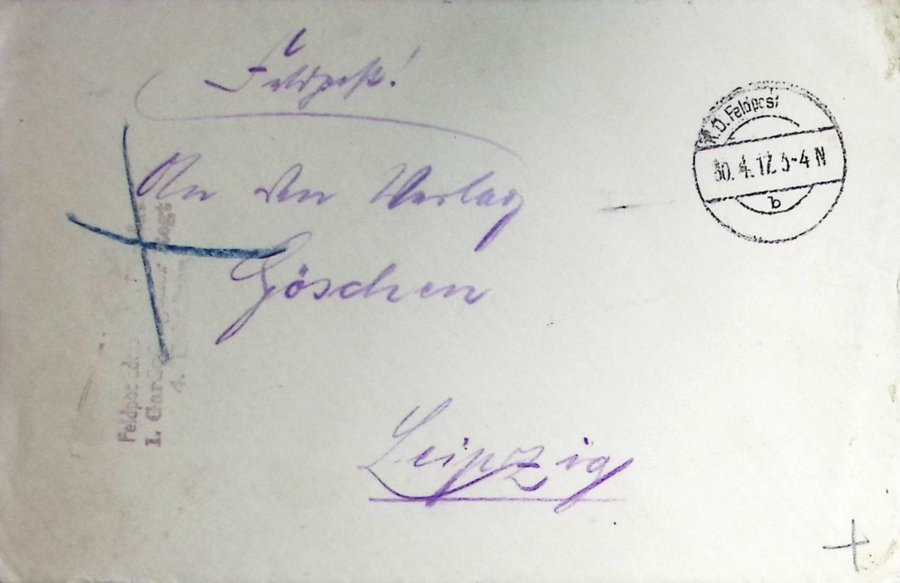 Feldpost!
An den Verlag
Göschen
Leipzig
K.D. Feldpost
30.4.17. 3-4 N
b
Feldpost
1. Garde Regt
4.